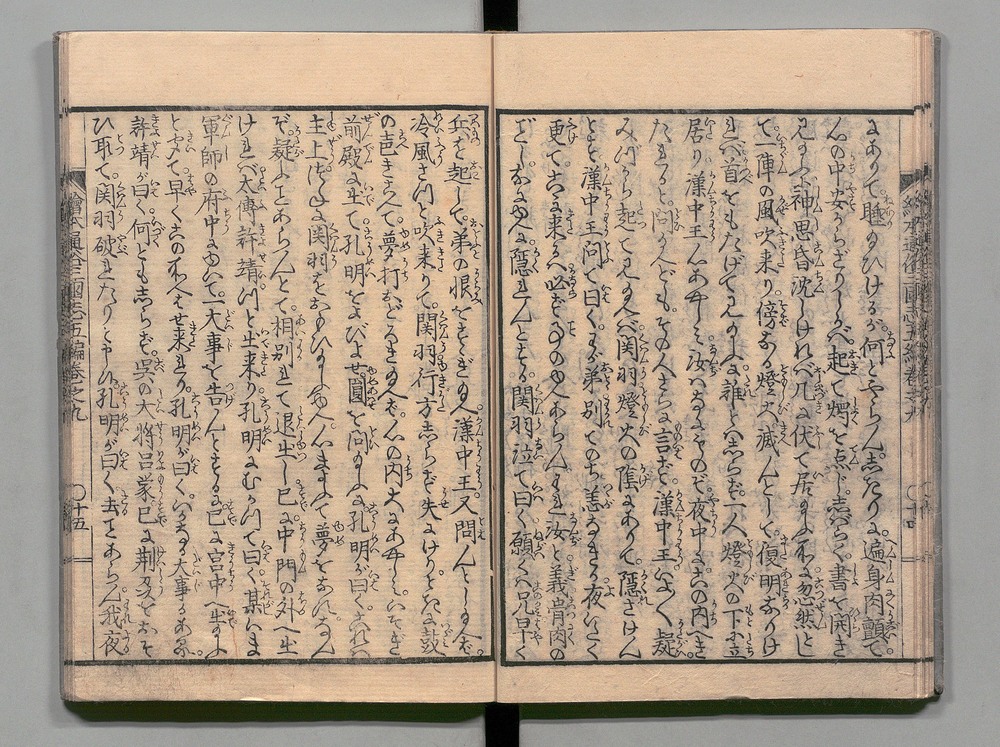 にありて睡りゐひけるが何とやらんしきりに遍身肉顫て
心の中安からざりしかバ起て燭を点じしバらく書を開き
見たまふに神思昏沈しけれバ几に伏て居たまふ所に忽然とし
て一陣の風吹来り傍なる燈火滅んとして復明なりけ
れバ首をもたげて見たまふに誰とハしらず一人燈火の下に立
居り漢中王心あやしミ汝ハいかなるものぞ夜中にこの内へき
たると問たまへども その人さらに言ず漢中王いよく疑
みづから起て見たまへバ関羽燈火の陰にありて隠さけん
とす漢中王問て曰くわが弟別てのち恙なきか夜いたく
更てこゝに来るハ必ずものゆへあらんわれ汝と義骨肉の
ごとしなにゆへに隠れんとする関羽泣て曰く願くハ兄早く
繪本通俗三國志五編巻之九
〇十四
兵を起して弟の恨をそゝぎたまへ漢中王又問んとしたまへば
冷風さつと吹来りて関羽行方しらず失にけりときに鼓
の声きこえて夢打おどろきたまへば心の内大にあやしミいそぎ
前殿に出て孔明をよびよせ圓夢を問たまふ孔明が曰くこれハ
主上つねに関羽をおもひたまふ心ふかきによつて夢をなしたまふなん
ぞ疑ふことあらんとて相別れて退出し已に中門の外へ出
けれバ太傅許靖つと出来り孔明にむかつて曰く某いま
軍師の府中にゆいて一大事を告んとするに已に宮中へ出たまふ
ときゝて早くこの所へはせ来れり孔明が曰くいかなる大事かある
許靖が曰く何ともしらず呉の大将呂蒙已に荊州をおそ
ひ取て関羽破れたりとやいふ孔明が曰く去ことあらん我夜
繪本通俗三國志五編巻之九
〇十五